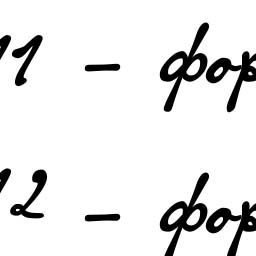 11 – фор
12 – фор